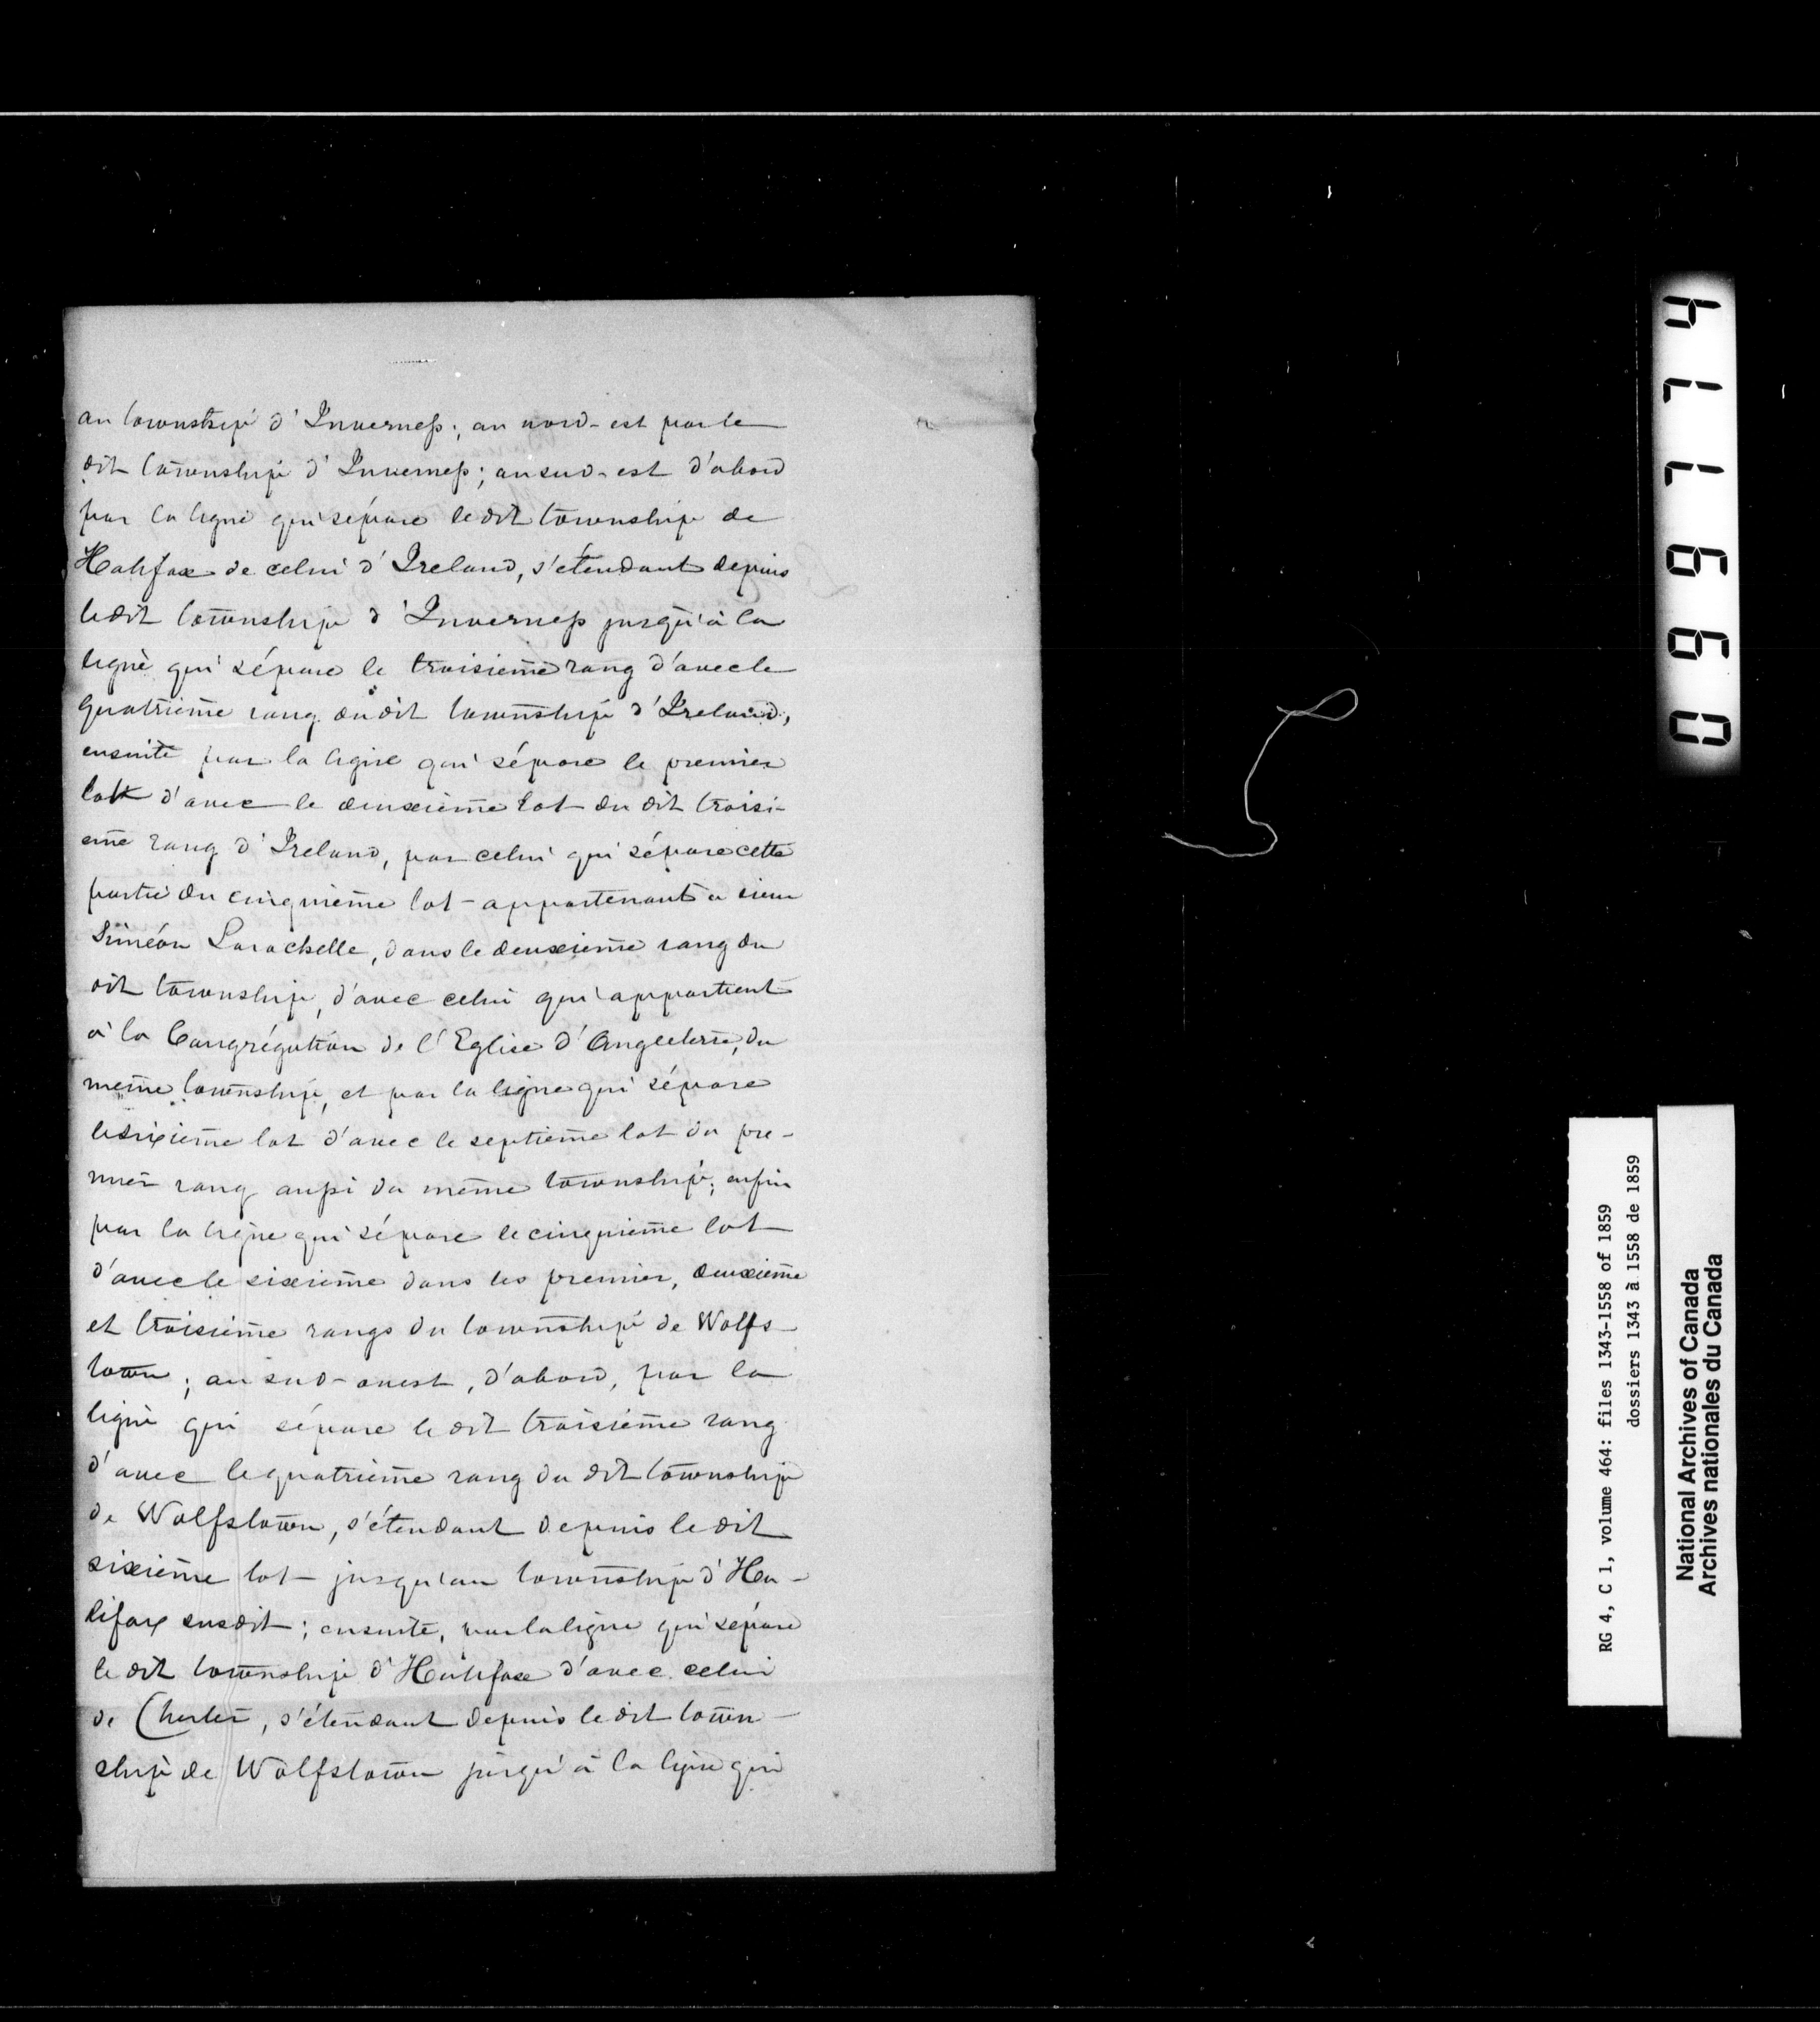 au township d'Inverness; au nord-est par le
dit township d'Inverness; au sud-est d'abord
par la ligne qui sépare le dit township de
Halifax de celui d'Ireland, s'étendant depuis
le dit township d'Inverness jusqu'à la
ligne qui sépare le troisième rang d'avec le
quatrième rang du dit township d'Ireland,
ensuite par la ligne qui sépare le premier
lot d'avec le deuxième lot du dit troisi-
ème rang d'Ireland, par celui qui sépare cette
partie du cinquième lot appartenant à sieur
Siméon Larochelle, dans le deuxième rang du
dit township, d'avec celui qui appartient
à la Congrégation de l'Eglise d'Angleterre, du
même township, et par la ligne qui sépare
le sixième lot d'avec le septième lot du pre-
mier rang aussi du même township; enfin
par la ligne qui sépare le cinquième lot
d'avec le sixième dans les premier, deuxième
et troisième rangs du township de Wolfs-
town; au sud-ouest, d'abord, par la
ligne qui sépare le dit troisième rang
d'avec le quatrième rang du dit township
de Wolfstown, s'étendant depuis le dit
sixième lot jusqu'au township d'Ha-
lifax susdit; ensuite, par la ligne qui sépare
le dit township d'Halifax d'avec celui
de Chester, s'étendant depuis le dit town-
ship de Wolfstown jusqu'à la ligne qui
099174
RG 4, C 1, volume 464: files 1343-1558 of 1859
dossiers 1343 à 1558 de 1859
National Archives of Canada
Archives nationales du Canada